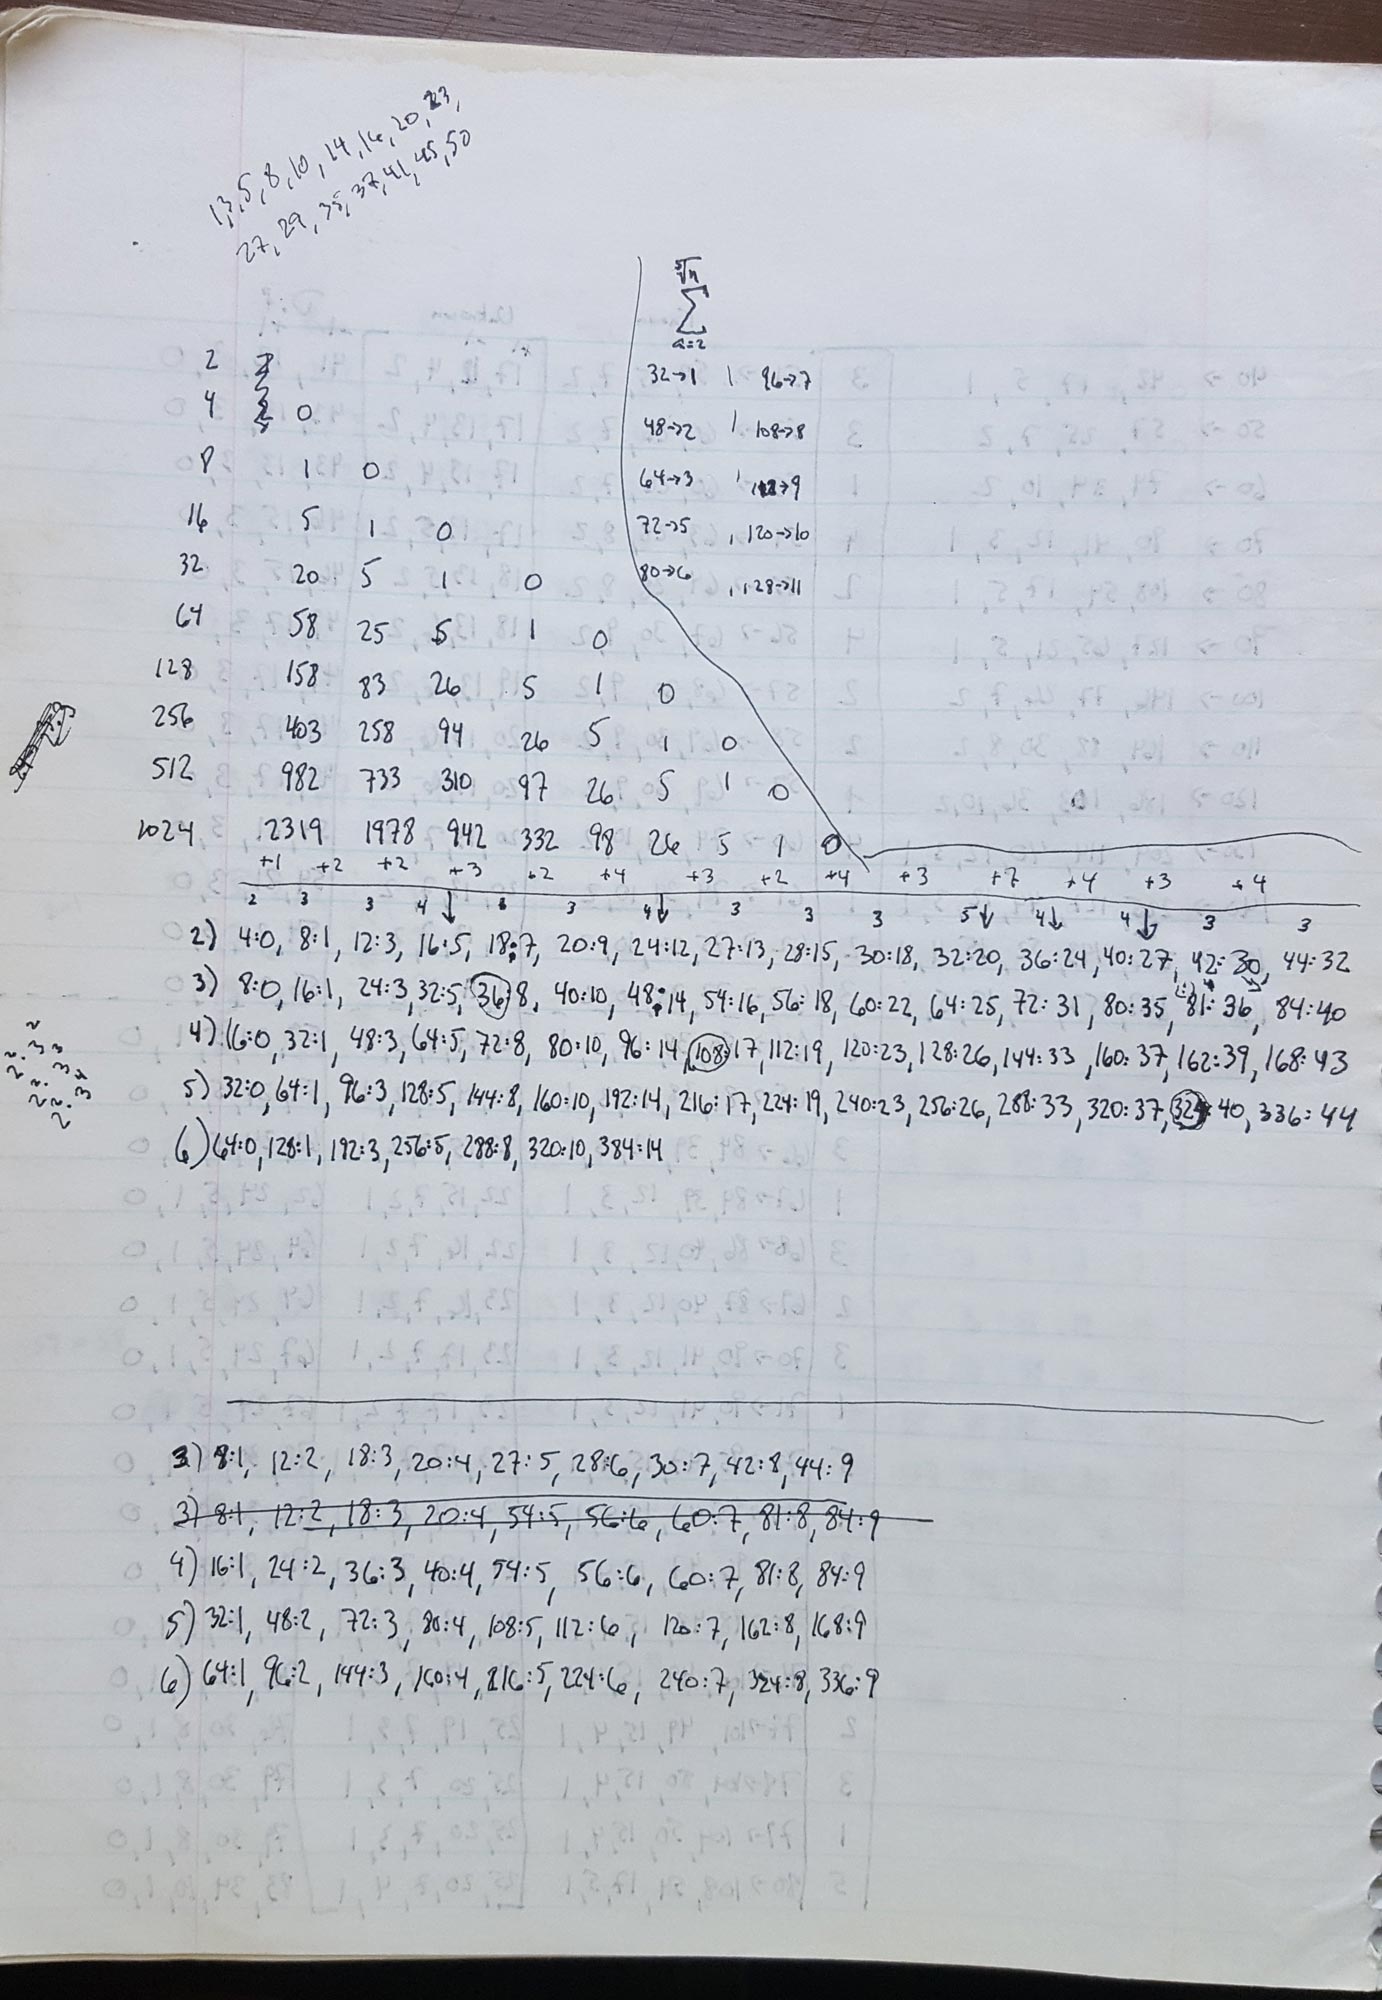 1,3,5,8,10,14,16,20,23,
27,29,35,37,41,45,50
⁵√n
∑
a=2
2
4 0
8 1 0
16 5 1 0
32 20 5 1 0
64 58 25 5 1 0
128 158 83 26 5 1 0
256 403 258 94 26 5 1 0
512 982 733 310 97 26 5 1 0
1024 2319 1978 942 332 98 26 5 1 0
32→1 | 96→7
48→2 | 108→8
64→3 | 112→9
72→5 , 120→10
80→6 , 128→11
+1 +2 +2 +3 +2 +4 +3 +2 +4 +3 +7 +4 +3 +4
2 3 3 4↓ 3 4↓ 3 3 3 5↓ 4↓ 4↓ 3 3
2) 4:0, 8:1, 12:3, 16:5, 18:7, 20:9, 24:12, 27:13, 28:15, 30:18, 32:20, 36:24, 40:27, 42:30, 44:32
3) 8:0, 16:1, 24:3, 32:5, 36:8, 40:10, 48:14, 54:16, 56:18, 60:22, 64:25, 72:31, 80:35, 81:36, 84:40
4) 16:0, 32:1, 48:3, 64:5, 72:8, 80:10, 96:14, 108:17, 112:19, 120:23, 128:26, 144:33, 160:37, 162:39, 168:43
5) 32:0, 64:1, 96:3, 128:5, 144:8, 160:10, 192:14, 216:17, 224:19, 240:23, 256:26, 288:33, 320:37, 324:40, 336:44
6) 64:0, 128:1, 192:3, 256:5, 288:8, 320:10, 384:14
3) 8:1, 12:2, 18:3, 20:4, 27:5, 28:6, 30:7, 42:8, 44:9
3) 8:1, 12:2, 18:3, 20:4, 54:5, 56:6, 60:7, 81:8, 84:9
4) 16:1, 24:2, 36:3, 40:4, 54:5, 56:6, 60:7, 81:8, 84:9
5) 32:1, 48:2, 72:3, 80:4, 108:5, 112:6, 120:7, 162:8, 168:9
6) 64:1, 96:2, 144:3, 160:4, 216:5, 224:6, 240:7, 324:8, 336:9